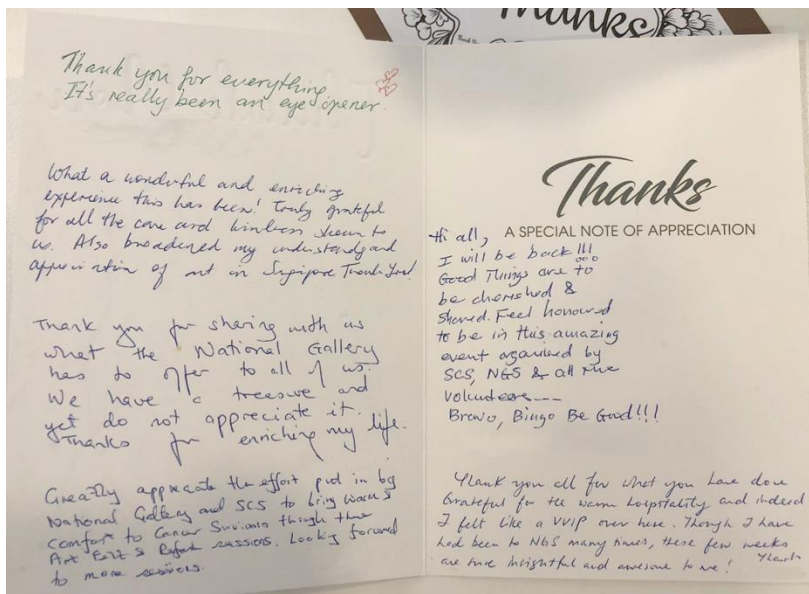 Thanks
Thank you for everything.
It's really been an eye opener.
What a wonderful and enriching
experience this has been! Truly grateful
for all the care and kindness shown to
us. Also broadened my understanding and
appreciation of art in Singapore Thank You!
Thank you for sharing with us
what the National Gallery
has to offer to all of us.
We have a treasure and
yet do not appreciate it.
Thanks for enriching my life.
Greatly appreciate the effort put in by
National Gallery and SCS to bring
comfort to Cancer Survivors through the
Art sessions. Looking forward
to more sessions.
Thanks
A SPECIAL NOTE OF APPRECIATION
Hi all,
I will be back!!!
Good Things are to
be cherished &
shared. Feel honoured
to be in this amazing
event organised by
SCS, NGS & all
volunteers---
Bravo, Bingo Be Good!!!
Thank you all for what you have done
Grateful for the warm hospitality and indeed
I felt like a VVIP over here. Though I have
had been to NGS many times, these few weeks
are insightful and awesome to me! Thanks